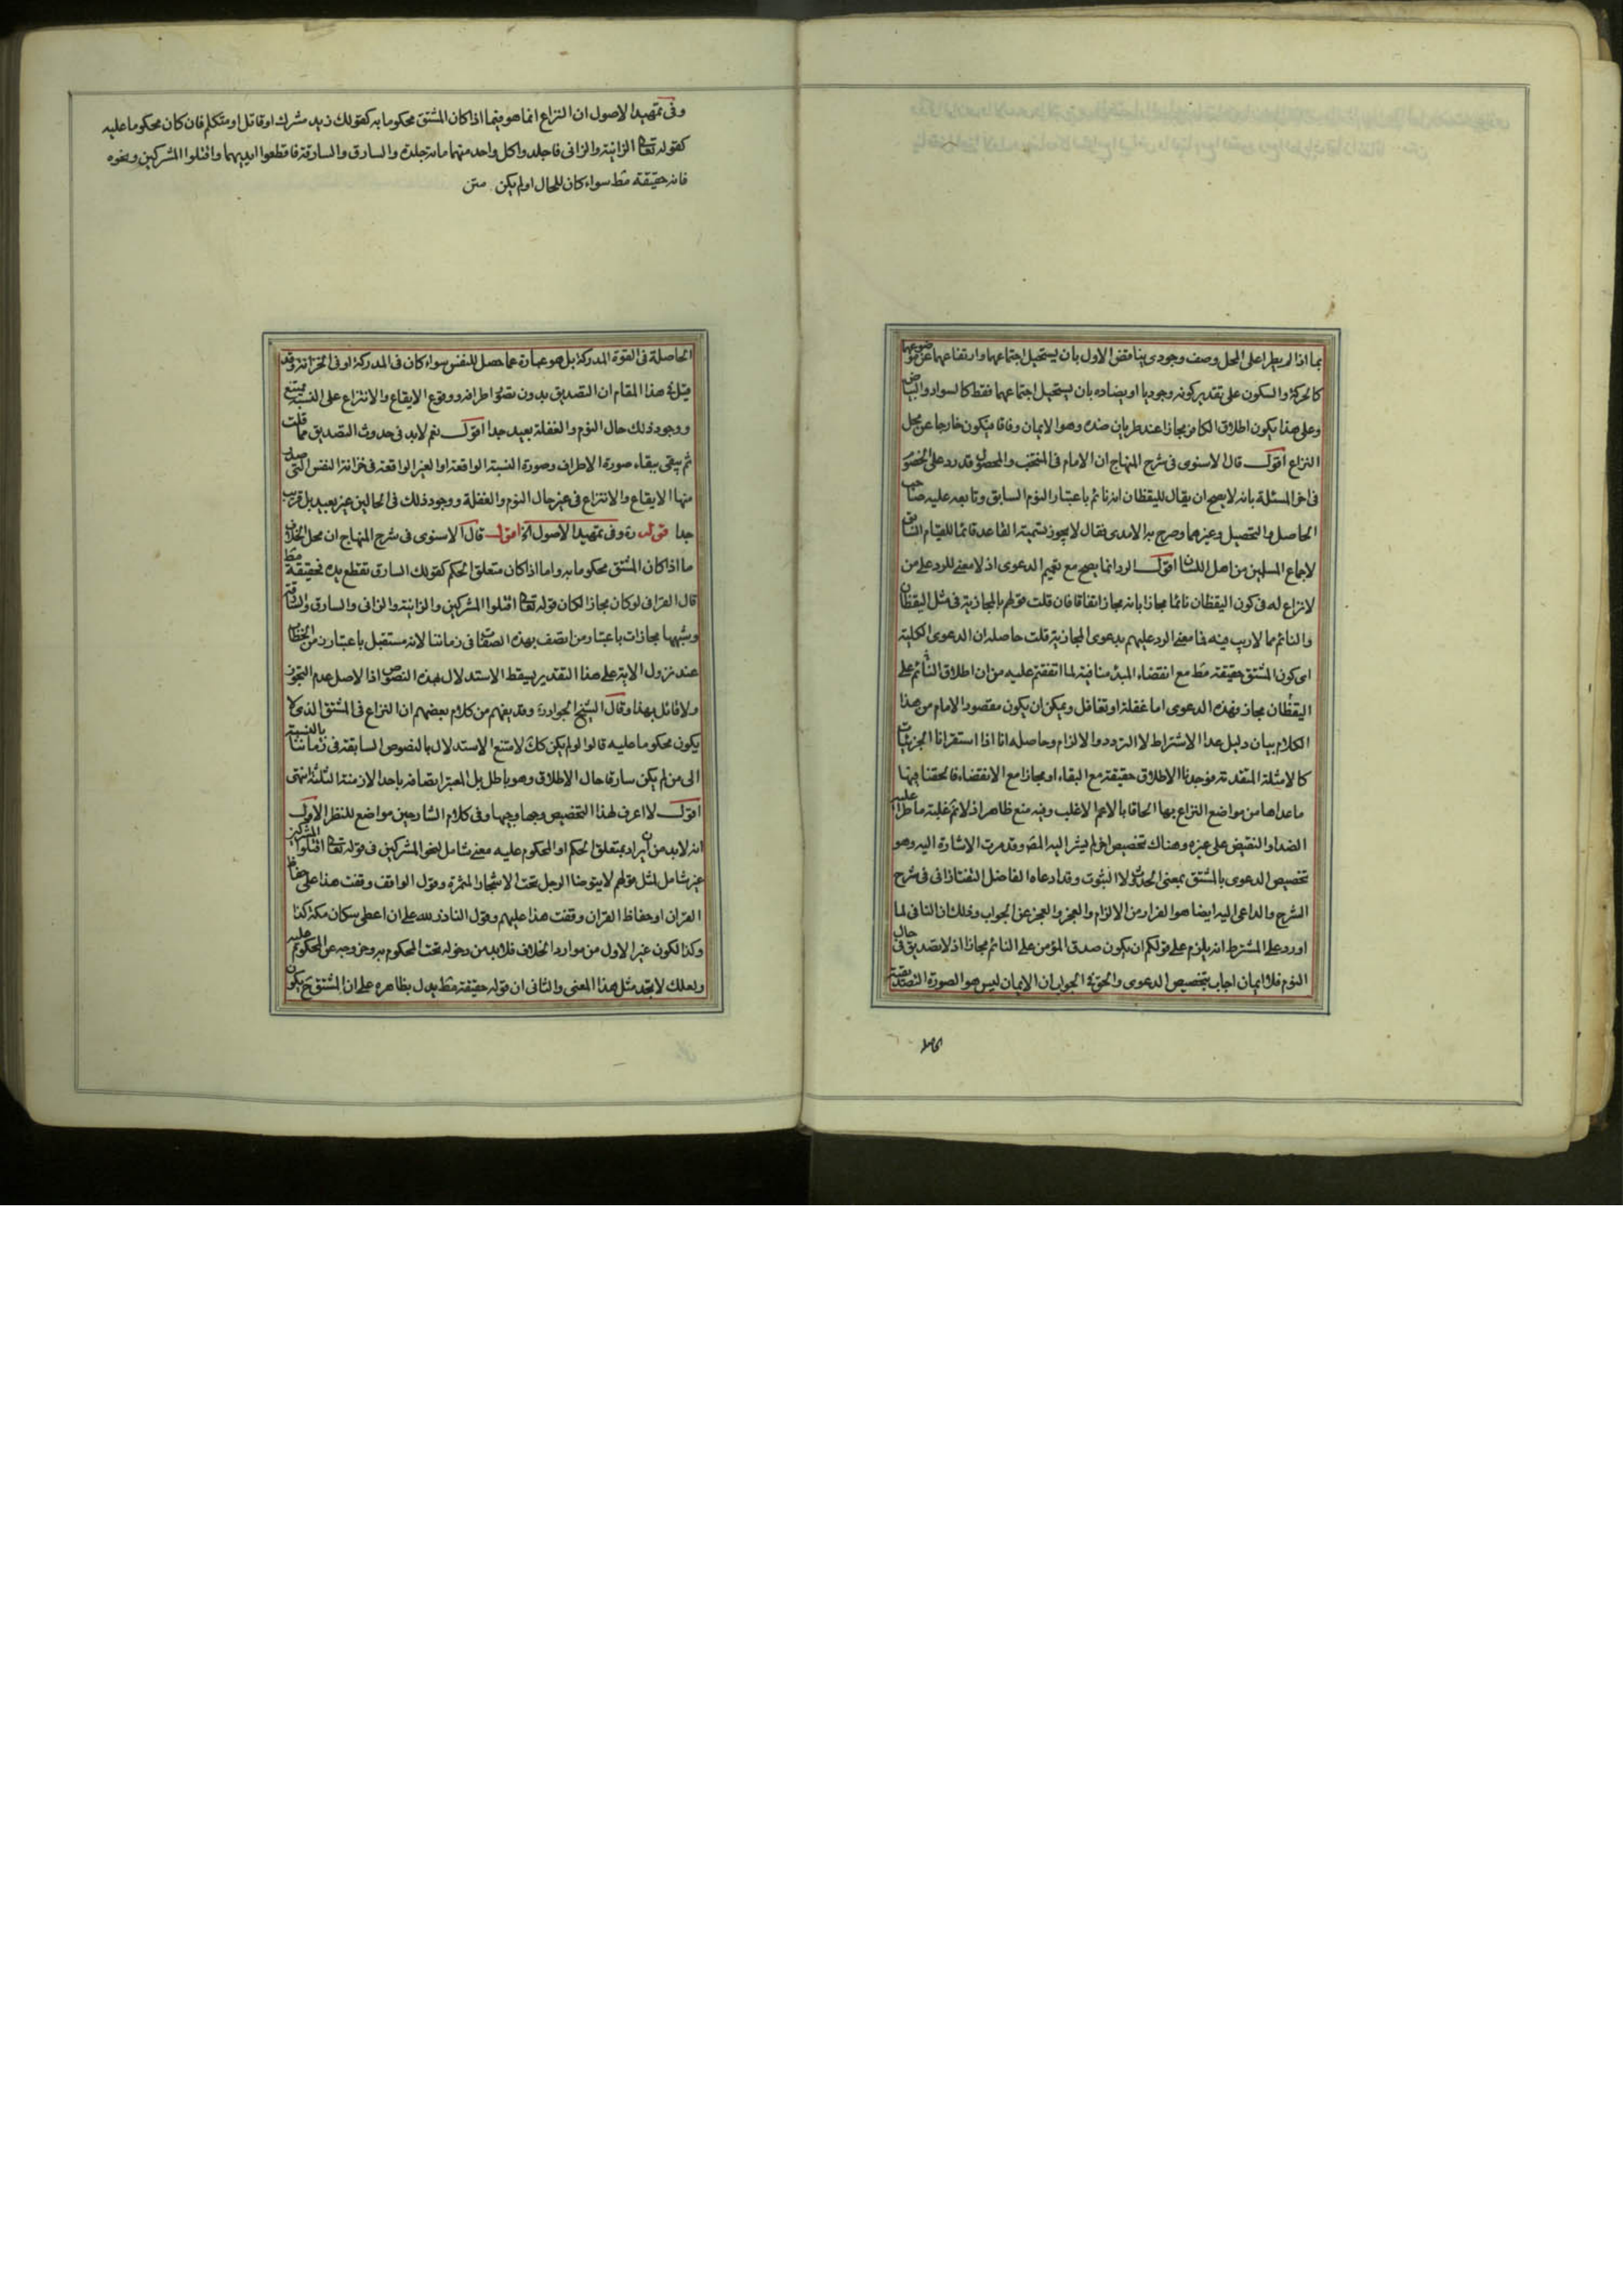 بما اذا لم يطرا على المحل وصف وجودى يناقض الاول بان يستحيل اجتماعهما وارتفاعهما عن موضوعهما
كالحركة والسكون على تقدير كونه وجوديا او يضاده بان يستحيل اجتماعهما فقط كالسواد والبياض
وعلى هذا يكون اطلاق الكافر مجازا عند طريان ضده وهو الايمان وفاقا فيكون خارجا عن محل
النزاع اقول قال الاسنوى فى شرح المنهاج ان الامام فى المنتخب والمحصول قد رد على الخصوم
فى اخر المسئلة بانه لا يصح ان يقال لليقظان انه نائم باعتبار النوم السابق وتابعه عليه صاحب
الحاصل والتحصيل وغيرهما وصرح به الامدى فقال لا يجوز تسمية القاعد قائما للقيام السابق
لاجماع المسلمين من اهل اللسان اقول الرد انما يصح مع تعميم الدعوى اذ لا معنى للرد على من
لا نزاع له فى كون اليقظان نائما مجازا بانه مجاز اتفاقا فان قلت قولهم بالمجازية فى مثل اليقظان
والنائم مما لا ريب فيه فما معنى الرد عليهم بدعوى المجازية قلت حاصله ان الدعوى الكلية
اى كون المشتق حقيقة مط مع انقضاء المبدء منافية لما اتفقتم عليه من ان اطلاق النائم على
اليقظان مجاز فهذه الدعوى اما غفلة او تغافل ويمكن ان يكون مقصود الامام من هذا
الكلام بيان دليل عدا الاشتراط لا التردد والالزام وحاصله انا اذا استقرانا الجزئيات
كالامثلة المتقدمة فوجدنا الاطلاق حقيقة مع البقاء او مجازا مع الانقضاء فالحقنا بها
ما عداها من مواضع النزاع بها الحاقا بالاعم الاغلب وفيه منع ظاهر اذ لا نم غلبة ما طرا عليه
الضد او النقيض على غيره وهناك تخصيص اخر لم يشر اليه المص وقد مرت الاشارة اليه وهو
تخصيص الدعوى بالمشتق بمعنى الحدوث لا الثبوت وقد ادعاه الفاضل التفتازانى فى شرح
الشرح والداعى اليه ايضا هو الفرار من الالزام والعجز والعجز عن الجواب وذلك ان النافى لما
اورد على المشترط انه يلزم على قولكم ان يكون صدق المؤمن على النائم مجازا اذ لا تصديق فى حال
النوم فلا ايمان اجاب بتخصيص الدعوى والحق فى الجواب ان الايمان ليس هو الصورة التصديقية
الحاصلة
وفى تمهيد الاصول ان النزاع انما هو فيما اذا كان المشتق محكوما به كقولك زيد مشرك او قاتل او متكلم فان كان محكوما عليه
كقوله تعالى الزانية والزانى فاجلدوا كل واحد منهما مائة جلدة والسارق والسارقة فاقطعوا ايديهما واقتلوا المشركين ونحوه
فانه حقيقة مط سواء كان للحال او لم يكن متن
الحاصلة فى القوة المدركة بل هو عبارة عما حصل للنفس سواء كان فى المدركة او فى الخزانة وقد
قيل فى هذا المقام ان التصديق بدون تصور اطرافه ووقوع الايقاع والانتزاع على النسبة ممتنع
ووجود ذلك حال النوم والغفلة بعيد جدا اقول نعم لا بد فى حدوث التصديق مما قلت
ثم يبقى ببقاء صورة الاطراف وصورة النسبة الواقعة او الغير الواقعة فى خزانة النفس التى حصلت
منها الايقاع والانتزاع فى غير حال النوم والغفلة ووجود ذلك فى الحالين غير بعيد بل قريب
جدا قوله ره وفى تمهيد الاصول اه اقول قال الاسنوى فى شرح المنهاج ان محل الخلاف
ما اذا كان المشتق محكوما به واما اذا كان متعلق الحكم كقولك السارق تقطع يده فحقيقة مط
قال القرافى لو كان مجازا لكان قوله تعالى اقتلوا المشركين والزانية والزانى والسارق والسارقة
وشبهها مجازات باعتبار من اتصف بهذه الصفات فى زماننا لانه مستقبل باعتبار زمن الخطاب
عند نزول الاية على هذا التقدير يسقط الاستدلال بهذه النصوص اذا الاصل عدم التجوز
ولا قائل بهذا وقال الشيخ الجواد ره وقد يفهم من كلام بعضهم ان النزاع فى المشتق الذى لا
يكون محكوما عليه قالوا لو لم يكن كك لامتنع الاستدلال بالنصوص السابقة فى زماننا بالنسبة
الى من لم يكن سارقا حال الاطلاق وهو باطل بل المعتبر اتصافه باحد الازمنة الثلثة انتهى
اقول لا اعرف لهذا التخصيص وجها وجيها وفى كلام الشارحين مواضع للنظر الاول
انه لا بد من ان يراد بمتعلق الحكم او المحكوم عليه معنى شامل لنحو المشركين فى قوله تعالى اقتلوا المشركين
غير شامل لمثل قولهم لا يتوضا الرجل تحت الاشجار المثمرة وقول الواقف وقفت هذا على حفاظ
القران او حفاظ القران وقفت هذا عليهم وقول الناذر لله على ان اعطى سكان مكة كذا
وكذا لكون غير الاول من موارد الخلاف فلا بد من دخوله تحت المحكوم به وخروجه عن المحكوم عليه
ولعلك لا تجد مثل هذا المعنى والثانى ان قوله حقيقة مط يدل بظاهره على ان المشتق ح يكون